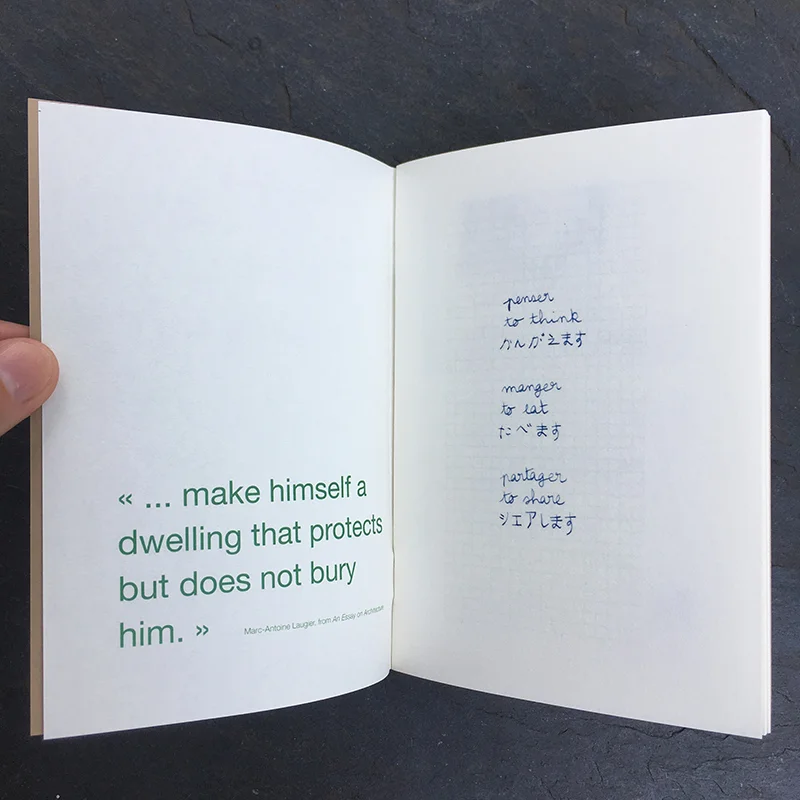 « ... make himself a
dwelling that protects
but does not bury
him. »
Marc-Antoine Laugier, from An Essay on Architecture
penser
to think
かんがえます
manger
to eat
たべます
partager
to share
シェアします